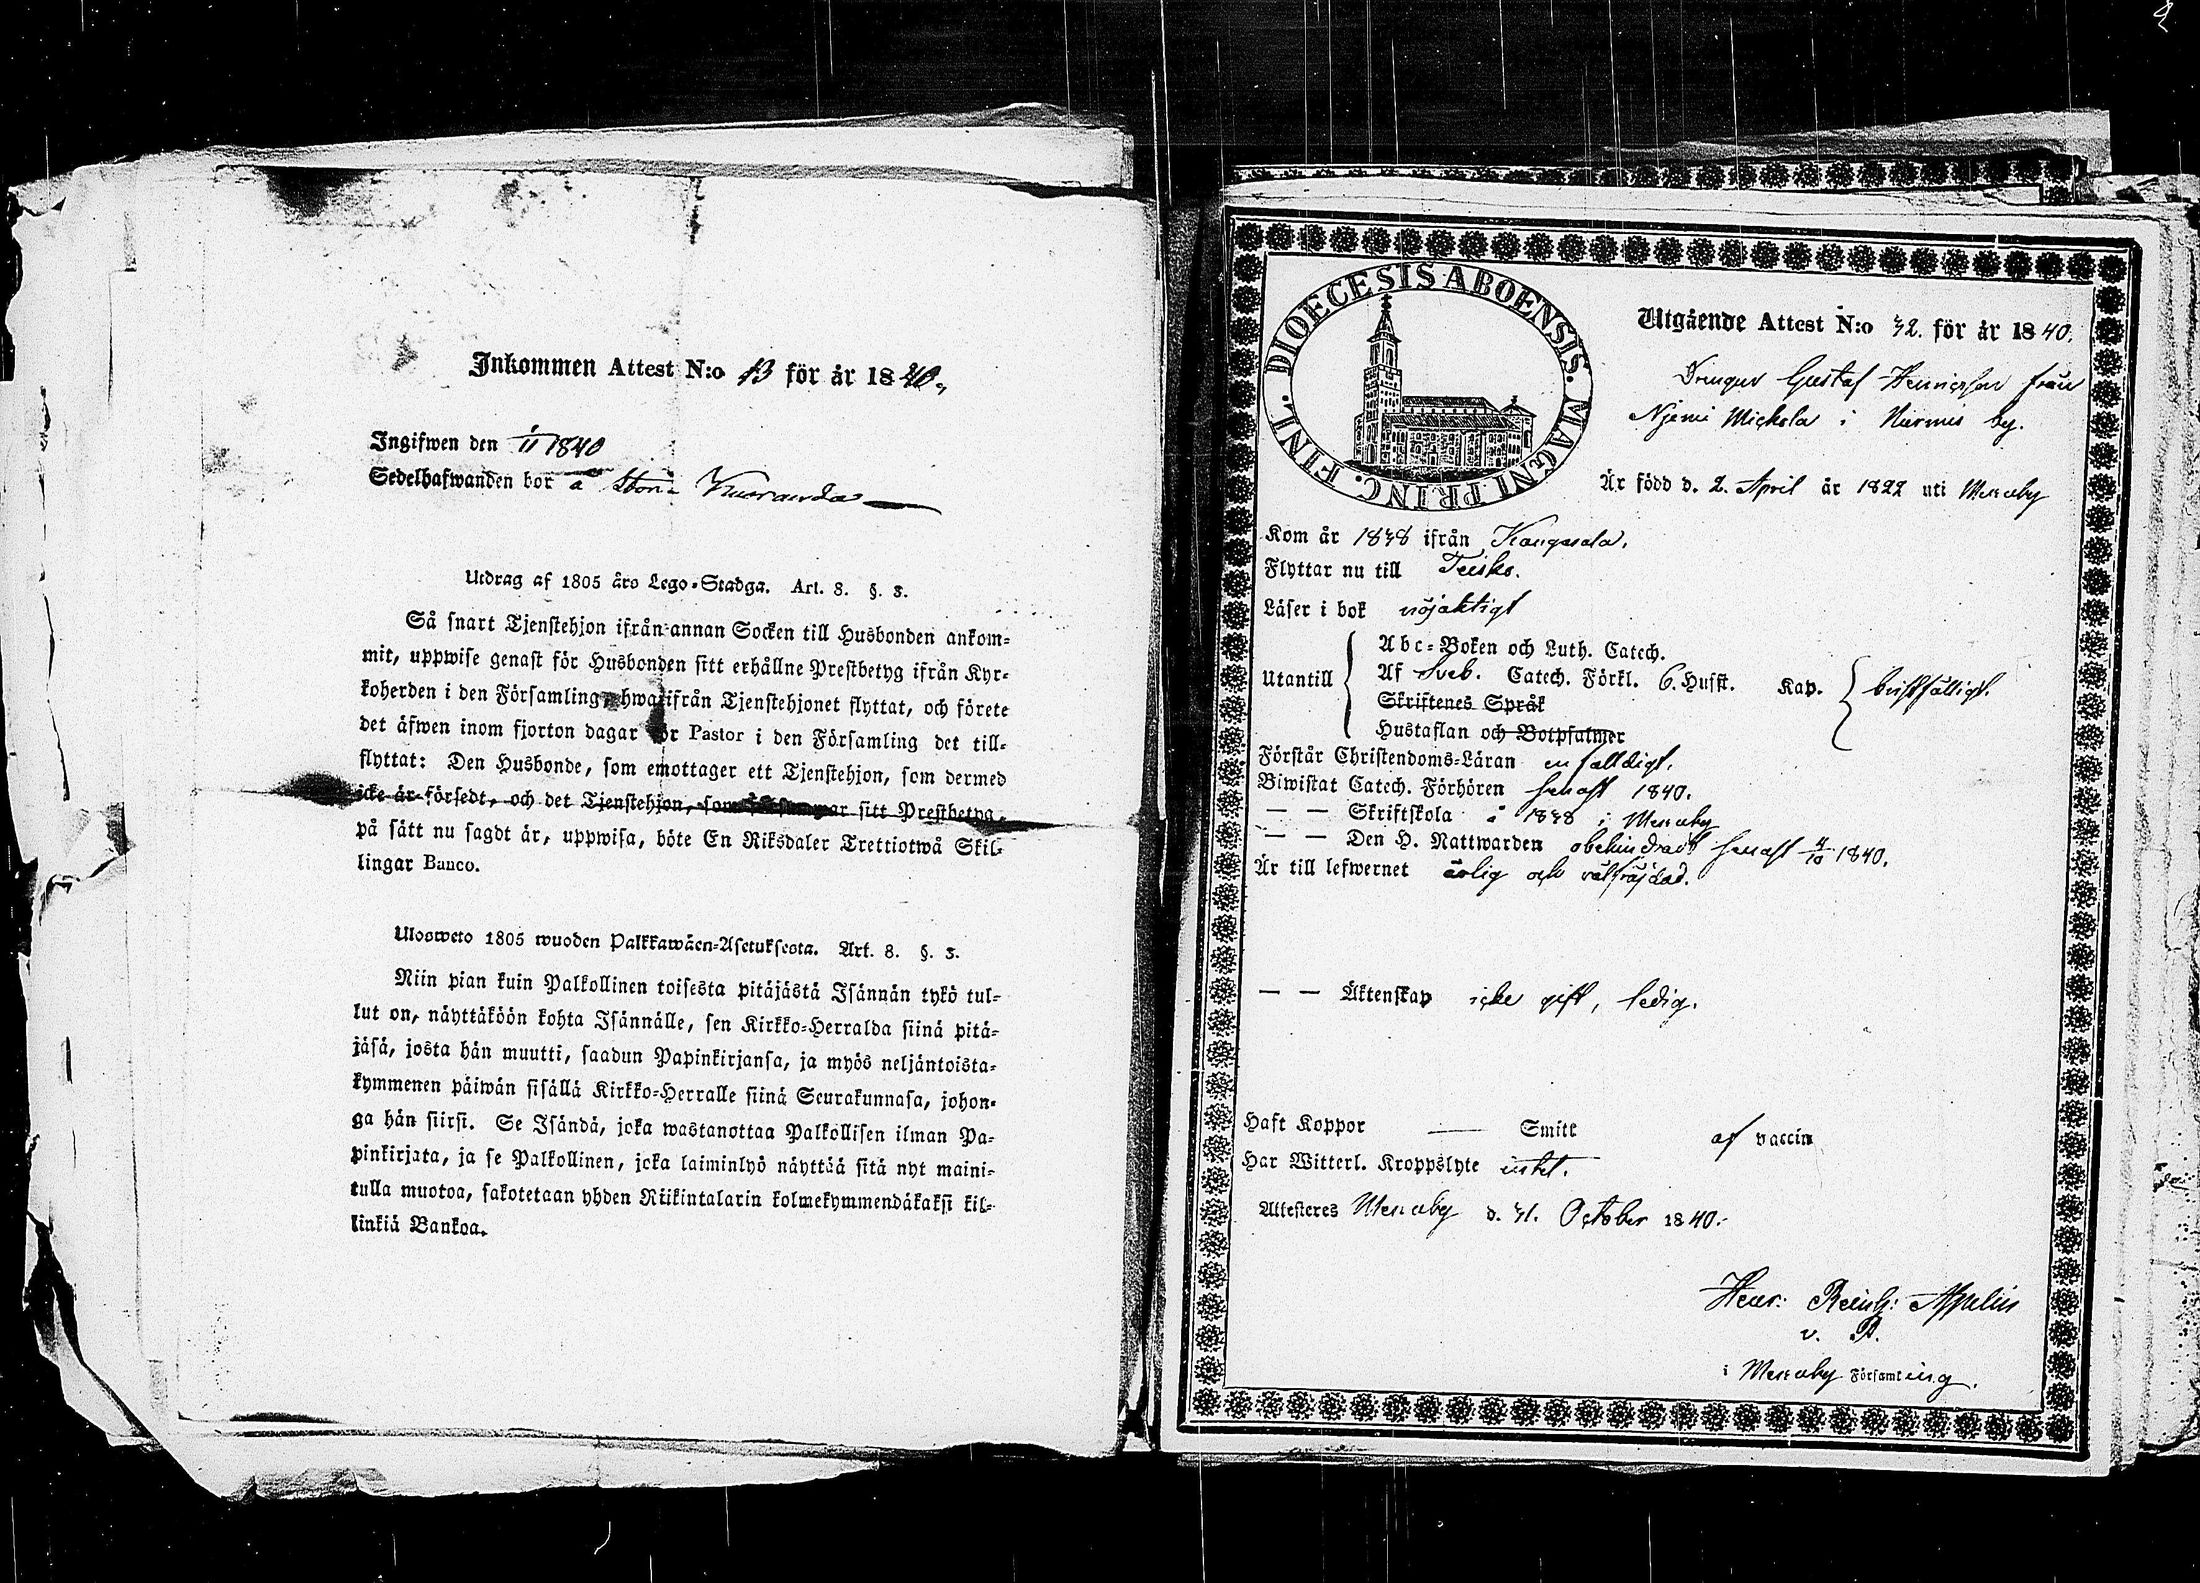 Inkommen Attest N:o 13 för år 1840.
Ingifwen den 1/11 1840
Sedelhafwanden bor å Stora Kuoranda
Utdrag af 1805 års Lego-Stadga. Art. 8. §. 3.
Så snart Tjenstehjon ifrån annan Socken till Husbonden ankom-
mit, uppwise genast för Husbonden sitt erhållne Prestbetyg ifrån Kyr-
koherden i den Församling, hwarifrån Tjenstehjonet flyttat, och förete
det äfwen inom fjorton dagar för Pastor i den Församling det till-
flyttat: Den Husbonde, som emottager ett Tjenstehjon, som dermed
icke är försedt, och det Tjenstehjon, som sitt Prestbetyg,
på sätt nu sagdt är, uppwisa, böte En Riksdaler Trettiotwå Skil-
lingar Banco.
Ulosweto 1805 wuoden Palkkawäen-Asetuksesta. Art. 8. §. 3.
Niin pian kuin Palkollinen toisesta pitäjästä Isännän tykö tul-
lut on, näyttäköön kohta Isännälle, sen Kirkko-Herralda siinä pitä-
jäsä, josta hän muutti, saadun Papinkirjansa, ja myös neljäntoista-
kymmenen päiwän sisällä Kirkko-Herralle siinä Seurakunnasa, johon-
ga hän siirsi. Se Isändä, joka wastanottaa Palkollisen ilman Pa-
pinkirjata, ja se Palkollinen, joka laiminlyö näyttää sitä nyt maini-
tulla muotoa, sakotetaan yhden Riikintalarin kolmekymmendäkaksi kil-
linkiä Bankoa.
DIOECESIS ABOENSIS. MAGNI PRINC. FINL.
Utgående Attest N:o 32. för år 1840.
Drengen Gustaf Henricsson från
Njemi Mickola i Nurmis by.
Är född d. 2. April år 1822 uti Messuby
Kom år 1838 ifrån Kangasala.
Flyttar nu till Teisko.
Läser i bok nöjaktigt
Utantill
Abc-Boken och Luth. Catech.
Af Sveb. Catech. Förkl. 6. Husst. Kap. bristfälligt.
Skriftenes Språk
Hustaflan och Botpsalmer
Förstår Christendoms-Läran enfalldigt.
Biwistat Catech. Förhören senast 1840.
— — Skriftskola å 1838 i Messuby
— — Den H. Nattwarden obehindradt senast 4/10 1840.
Är till lefwernet ärlig och välfräjdad.
— — Äktenskap icke gift, ledig.
Haft Koppor — Smitt af vaccin
Har Witterl. Kroppslyte intet.
Attesteres Messuby d. 31. October 1840.
Henr: Reinh: Appelin
v. P.
i Messuby Församling.